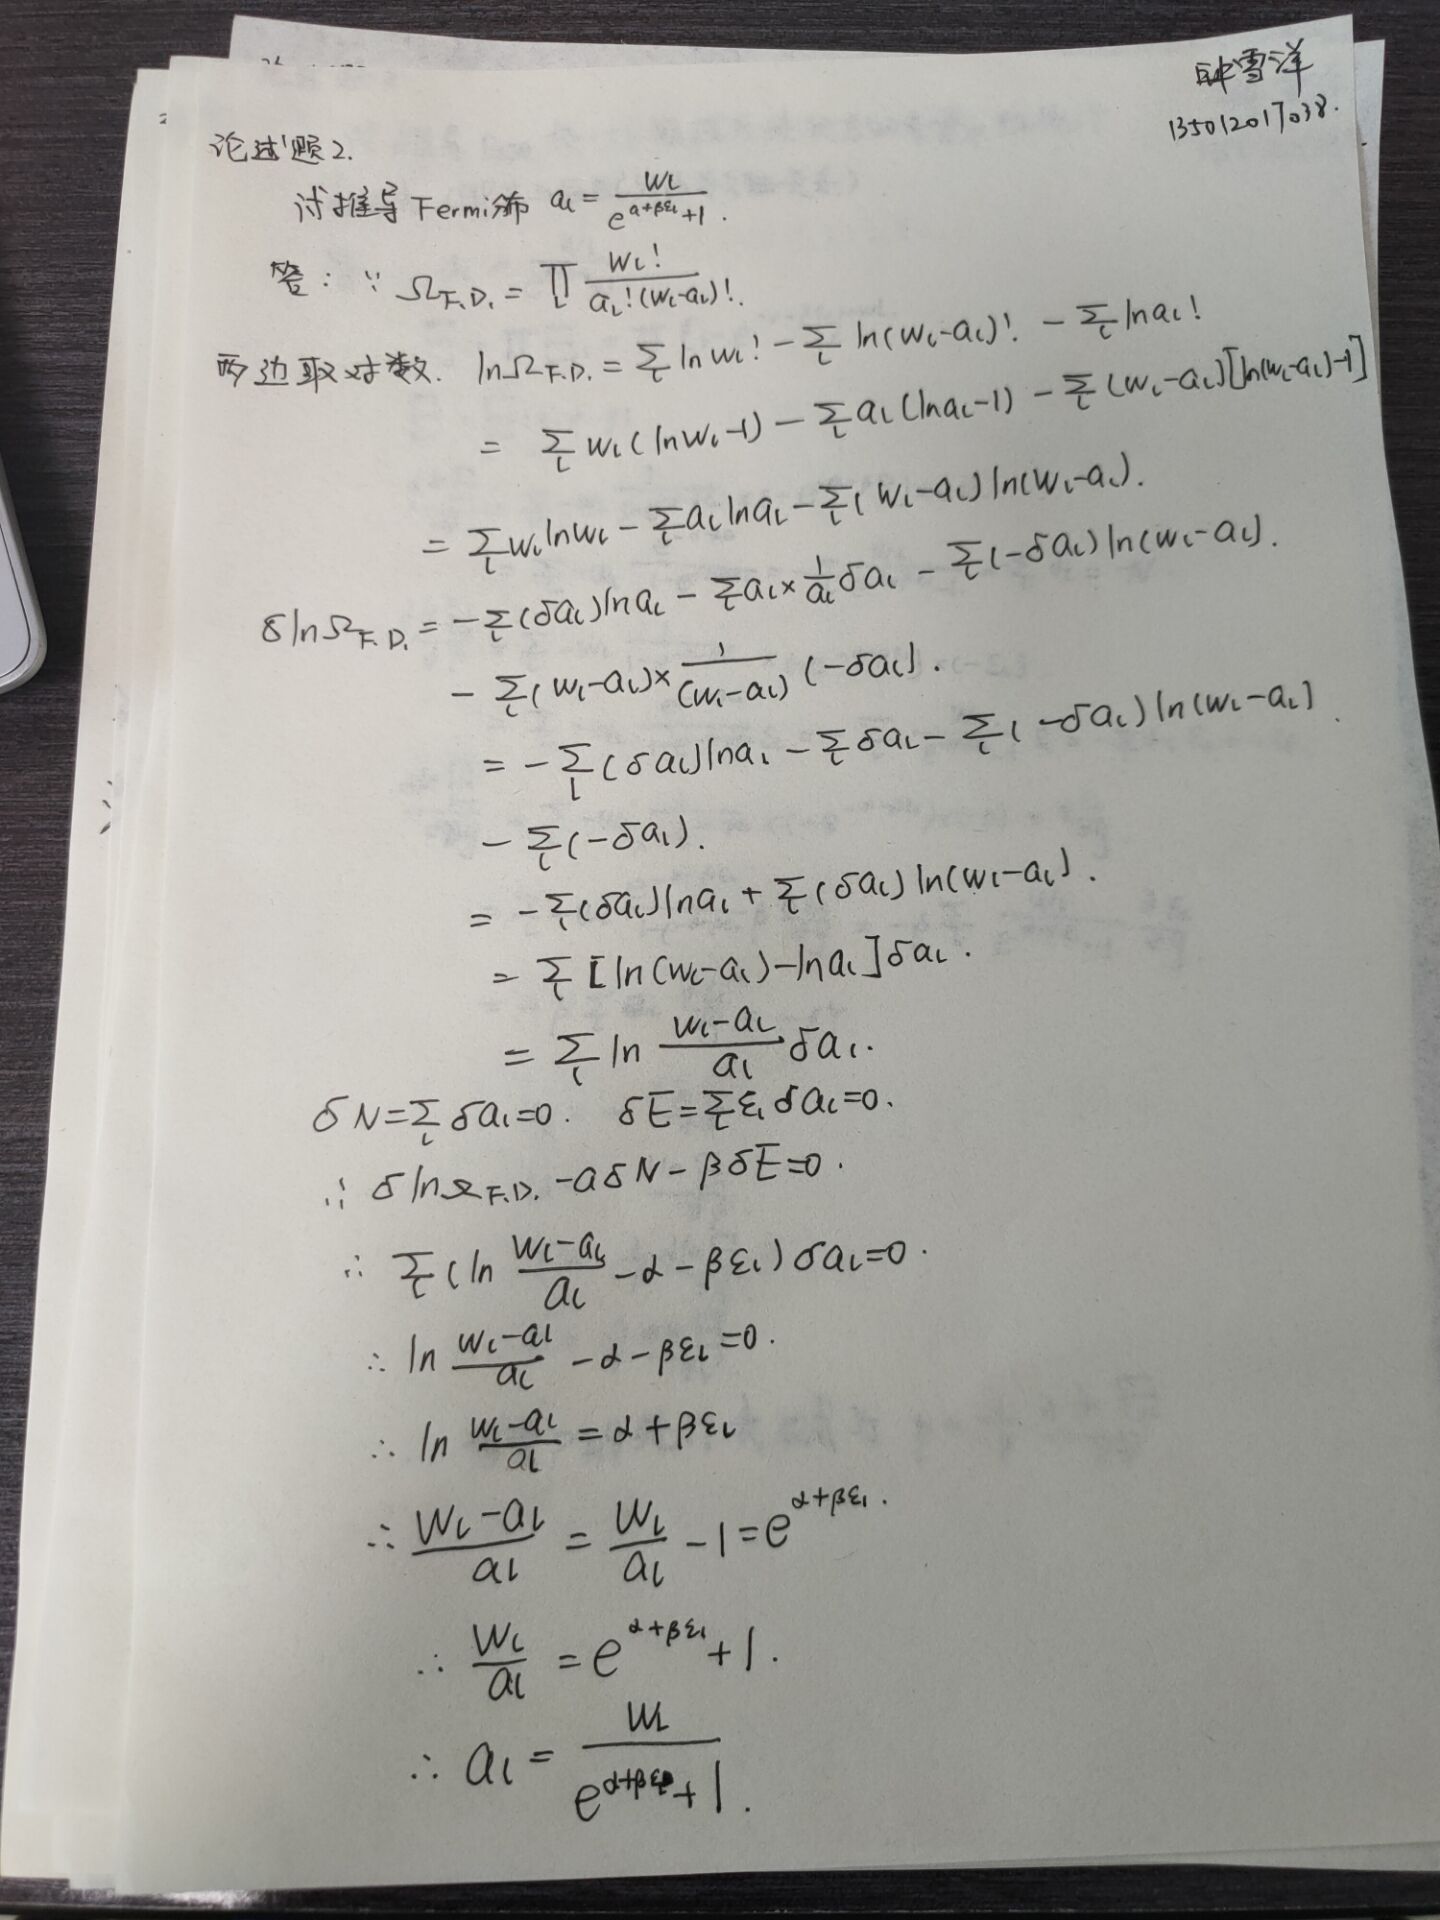 雪洋
135012017038.
论述题2.
试推导Fermi分布 a_l = w_l / (e^{α+βε_l}+1).
答: ∵ Ω_{F.D.} = ∏_l w_l! / (a_l!(w_l-a_l)!).
两边取对数. lnΩ_{F.D.} = Σ_l ln w_l! - Σ_l ln(w_l-a_l)! - Σ_l ln a_l!
= Σ_l w_l(ln w_l-1) - Σ_l a_l(ln a_l-1) - Σ_l (w_l-a_l)[ln(w_l-a_l)-1]
= Σ_l w_l ln w_l - Σ_l a_l ln a_l - Σ_l (w_l-a_l) ln(w_l-a_l).
δlnΩ_{F.D.} = -Σ_l (δa_l) ln a_l - Σ_l a_l × (1/a_l) δa_l - Σ_l (-δa_l) ln(w_l-a_l).
- Σ_l (w_l-a_l) × 1/(w_l-a_l) (-δa_l).
= -Σ_l (δa_l) ln a_l - Σ_l δa_l - Σ_l (-δa_l) ln(w_l-a_l).
- Σ_l (-δa_l).
= -Σ_l (δa_l) ln a_l + Σ_l (δa_l) ln(w_l-a_l).
= Σ_l [ln(w_l-a_l) - ln a_l] δa_l.
= Σ_l ln (w_l-a_l)/a_l δa_l.
δN = Σ_l δa_l = 0. δE = Σ_l ε_l δa_l = 0.
∴ δlnΩ_{F.D.} - αδN - βδE = 0.
∴ Σ_l (ln (w_l-a_l)/a_l - α - βε_l) δa_l = 0.
∴ ln (w_l-a_l)/a_l - α - βε_l = 0.
∴ ln (w_l-a_l)/a_l = α + βε_l
∴ (w_l-a_l)/a_l = w_l/a_l - 1 = e^{α+βε_l}.
∴ w_l/a_l = e^{α+βε_l} + 1.
∴ a_l = w_l / (e^{α+βε_l} + 1).